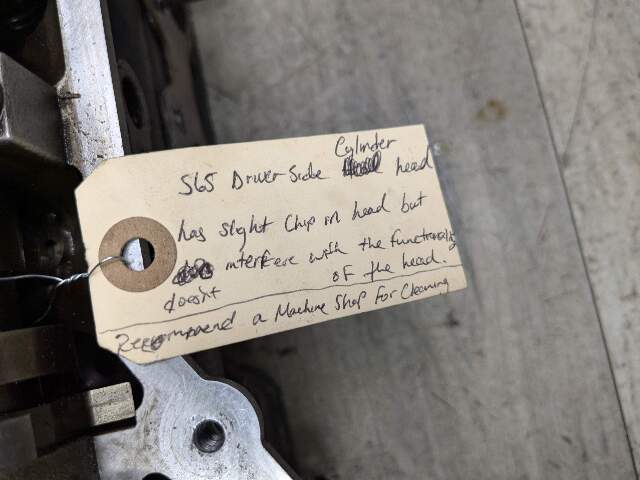 Cylinder
S65 Driver Side head
has slight Chip in head but
interfere with the functionality
doesn't of the head.
Recommend a Machine Shop For Cleaning